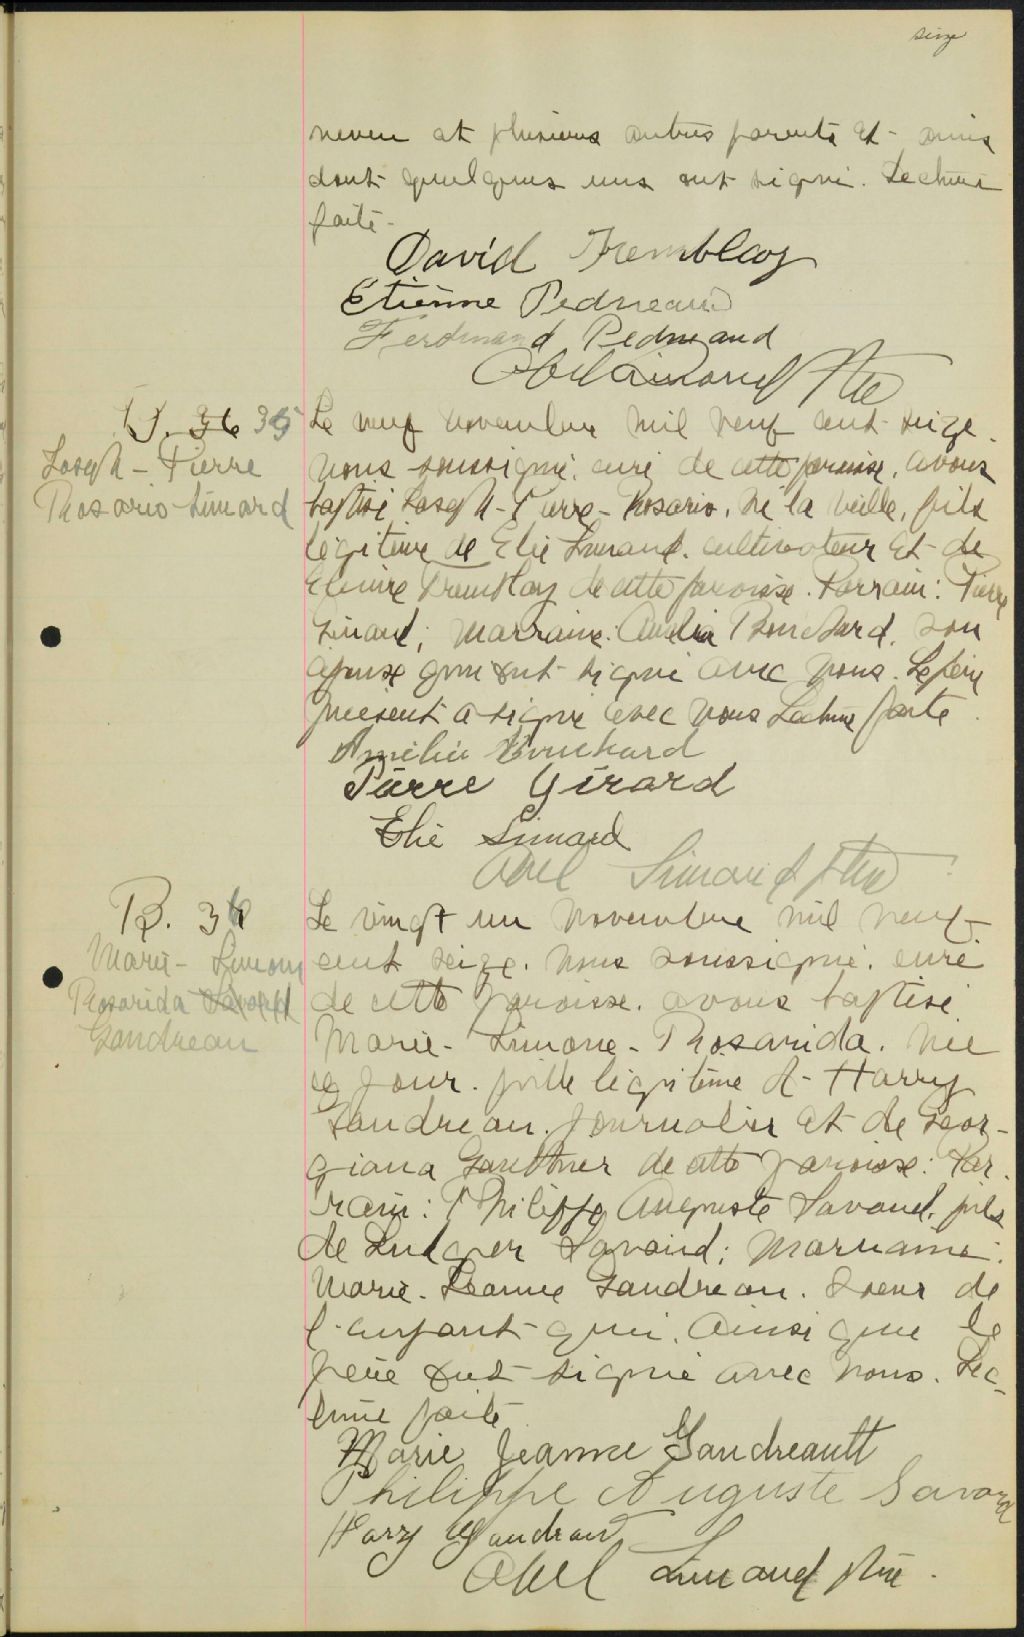 seize
neveu et plusieurs autres parents et amis
dont quelques uns ont signé. Lecture
faite.
David Tremblay
Etienne Pedneaud
Ferdinand Pedneaud
Abel Simard Ptre
B. 36 35
Joseph-Pierre
Rosario Simard
Le neuf novembre mil neuf cent seize.
nous soussigné, curé de cette paroisse, avons
baptisé Joseph-Pierre-Rosario, né la veille, fils
légitime de Elie Simard, cultivateur et de
Elmire Tremblay de cette paroisse. Parrain: Pierre
Girard; marraine: Amélia Bouchard, son
épouse qui ont signé avec nous. Le père
présent a signé avec nous Lecture faite.
Amélia Bouchard
Pierre Girard
Elie Simard
Abel Simard Ptre
B. 36
Marie-Simone
Rosarida Savard
Gaudreau
Le vingt un novembre mil neuf
cent seize. nous soussigné, curé
de cette paroisse, avons baptisé
Marie-Simone-Rosarida. née
ce jour. fille légitime d'Harry
Gaudreau, journalier et de Geor-
giana Gauthier de cette paroisse: Par-
rain: Philippe Auguste Savard, fils
de Ludger Savard; marraine:
Marie-Jeanne Gaudreau. soeur de
l'enfant qui, ainsi que le
père ont signé avec nous. Lec-
ture faite
Marie Jeanne Gaudreault
Philippe Auguste Savard
Harry Gaudreau
Abel Simard Ptre.